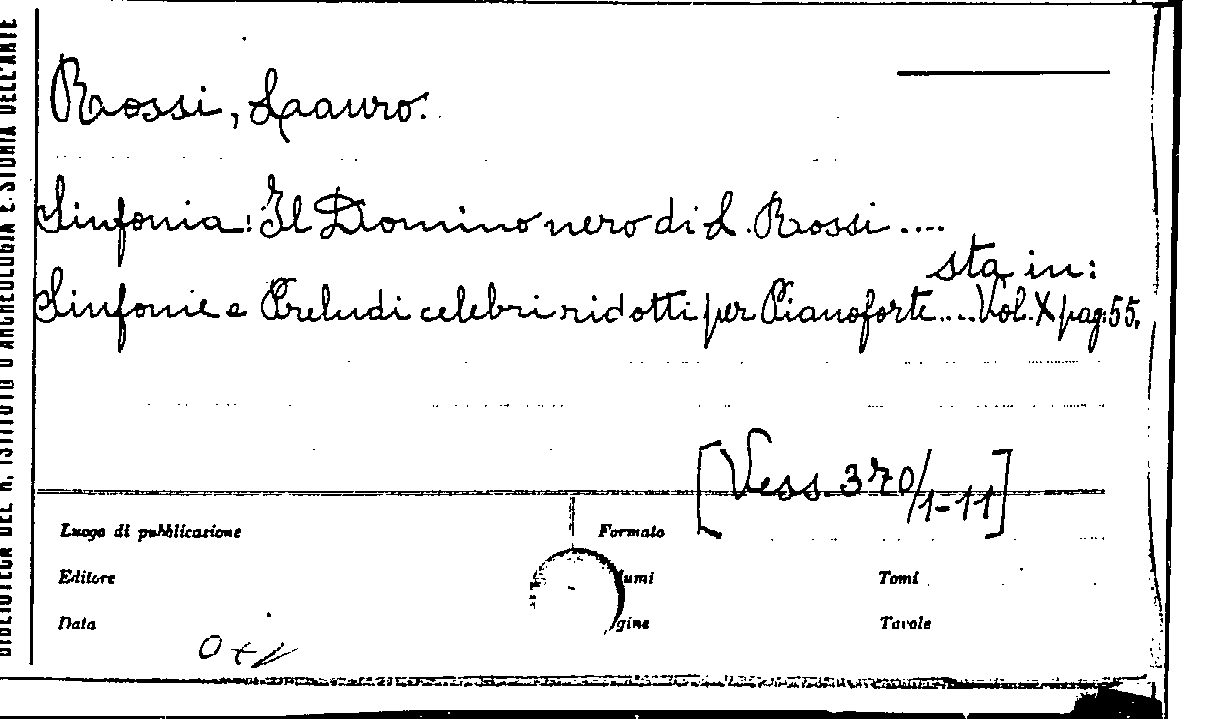 BIBLIOTECA DEL R. ISTITUTO D'ARCHEOLOGIA E STORIA DELL'ARTE
Rossi, Lauro.
Sinfonia: Il Domino nero di L. Rossi ....
sta in:
Sinfonie e Preludi celebri ridotti per Pianoforte.... Vol. X pag. 55.
[Vess. 370/1-11]
Luogo di pubblicazione Formato
Editore lumi Tomi
Data gine Tavole